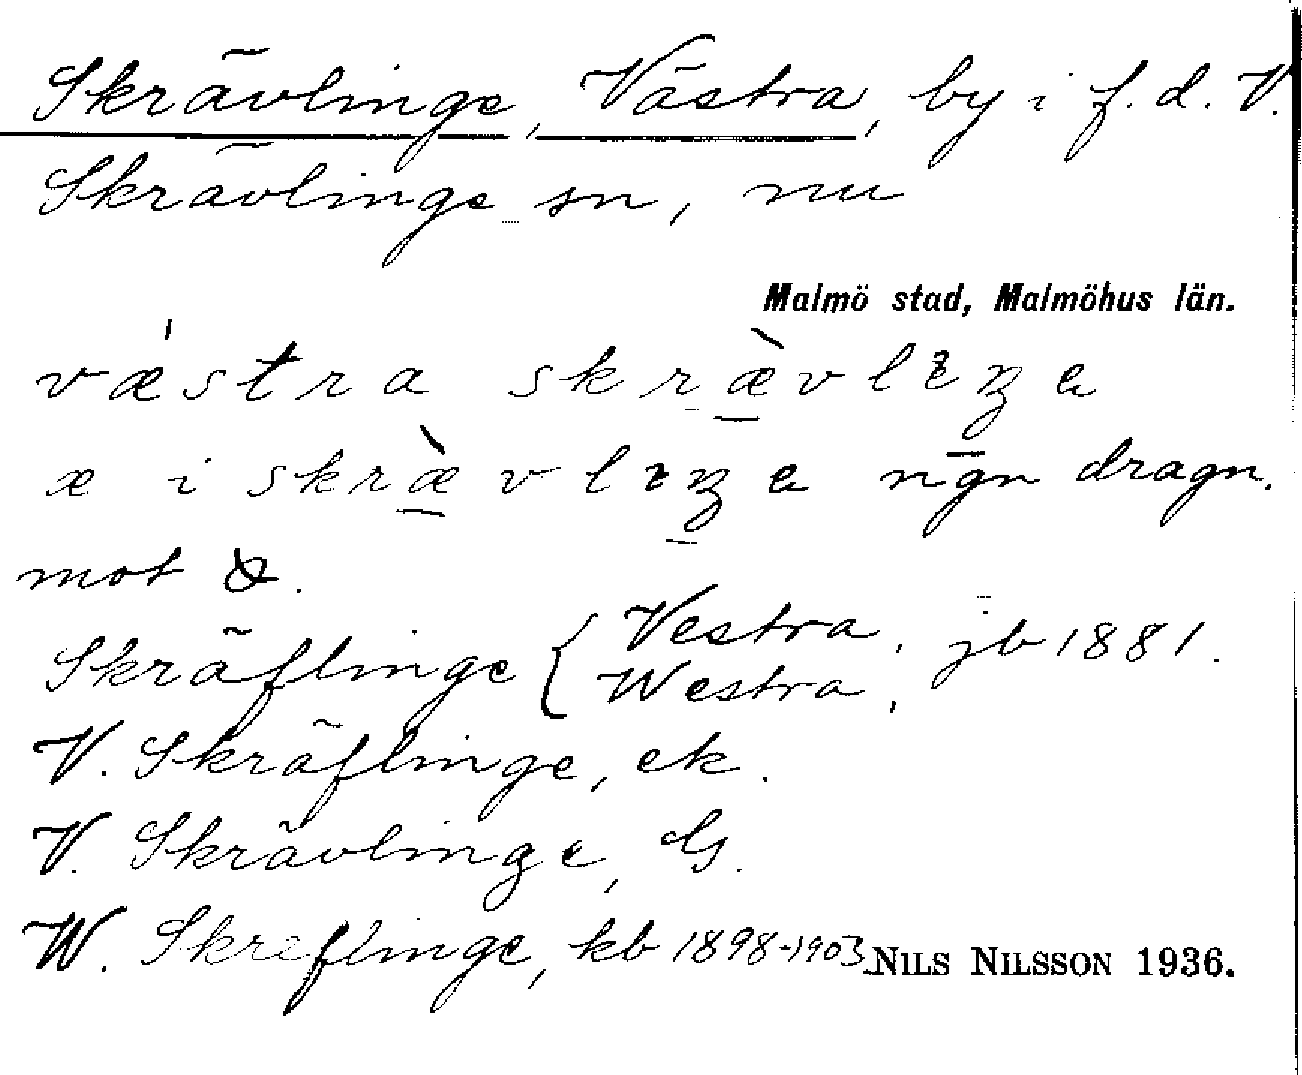 Skrävlinge, Västra, by i f. d. V.
Skrävlinge sn, nu
Malmö stad, Malmöhus län.
vǽstra skræ̀vlɪŋe
æ i skræ̀vlɪŋe ngn dragn.
mot
Skräflinge { Vestra, Westra, jb 1881.
V. Skräflinge, ek.
V. Skrävlinge, G.
W. Skreflinge, kb 1898-1903
NILS NILSSON 1936.